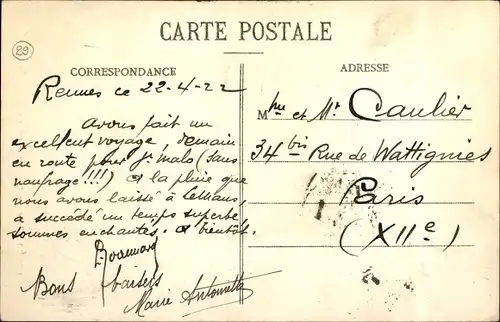 29
CARTE POSTALE
CORRESPONDANCE
ADRESSE
Rennes ce 22-4-22
Avons fait un
excellent voyage, demain
en route pour St Malo (sans
naufrage!!!) Et la pluie que
nous avons laissé à Le Mans,
a succédé un temps superbe
sommes enchantés. A bientôt.
Bons baisers
Marie Antoinette
Mme et Mr Caulier
34 bis Rue de Wattignies
Paris
(XIIe)